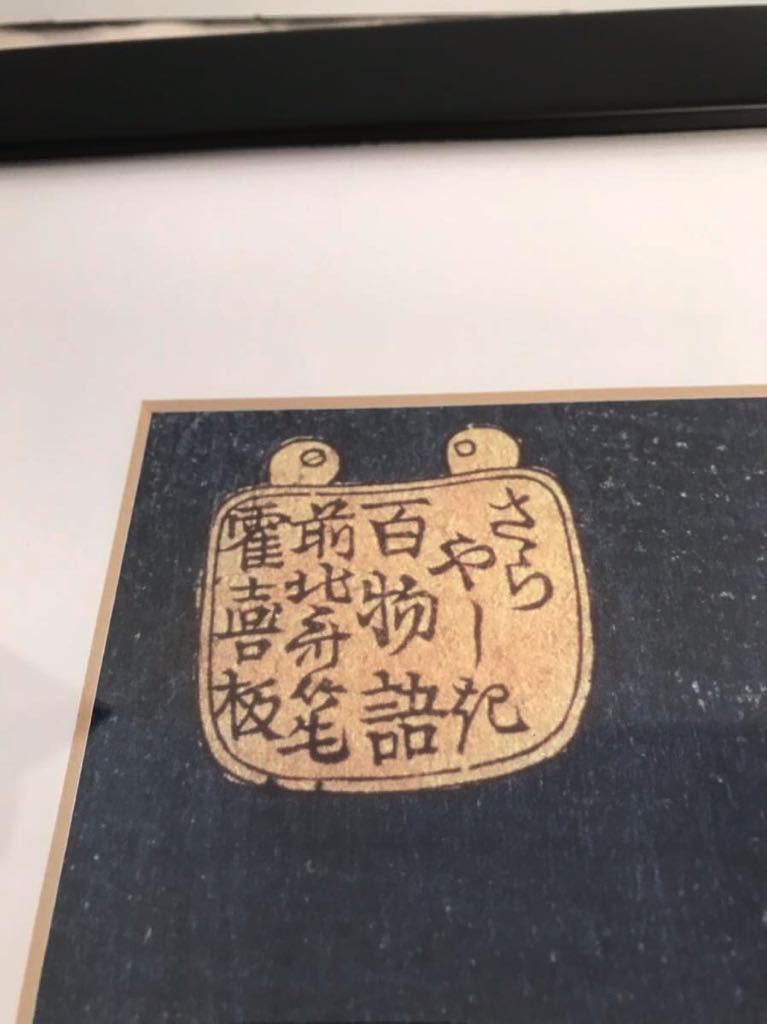 さら
やしき
百物語
前北斎笔
霍喜板